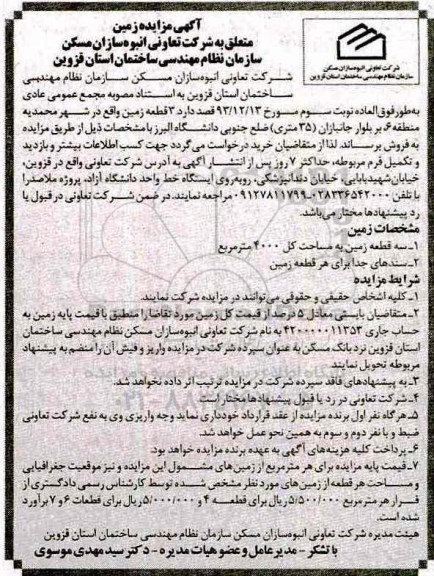 آگهی مزایده زمین
متعلق به شرکت تعاونی انبوه سازان مسکن
سازمان نظام مهندسی ساختمان استان قزوین
شرکت تعاونی انبوه سازان مسکن
سازمان نظام مهندسی ساختمان استان قزوین
شرکت تعاونی انبوه‌سازان مسکن سازمان نظام مهندسی
ساختمان استان قزوین به استناد مصوبه مجمع عمومی عادی
به‌طور فوق‌العاده نوبت سوم مورخ ۹۳/۱۲/۱۳ قصد دارد ۳ قطعه زمین واقع در شهر محمدیه
منطقه ۶، بر بلوار جانبازان (۳۵ متری) ضلع جنوبی دانشگاه البرز با مشخصات ذیل از طریق مزایده
به فروش برساند. لذا از متقاضیان خرید درخواست می‌گردد جهت کسب اطلاعات بیشتر و بازدید
و تکمیل فرم مربوطه، حداکثر ۷ روز پس از انتشار آگهی به آدرس شرکت تعاونی واقع در قزوین،
خیابان شهید بابایی، خیابان دندانپزشکی، روبه‌روی ایستگاه خط واحد دانشگاه آزاد، پروژه ملاصدرا
با تلفن ۰۲۸۳۳۶۵۴۲۰۰۰ـ۰۹۱۲۷۸۱۱۷۹۹ مراجعه نمایند. در ضمن شرکت تعاونی در قبول یا
رد پیشنهادها مختار می‌باشد.
مشخصات زمین
۱ـ سه قطعه زمین به مساحت کل ۴۰۰۰ مترمربع
۲ـ سندهای جدا برای هر قطعه زمین
شرایط مزایده
۱ـ کلیه اشخاص حقیقی و حقوقی می‌توانند در مزایده شرکت نمایند.
۲ـ متقاضیان بایستی معادل ۵ درصد از قیمت کل زمین مورد تقاضا را منطبق با قیمت پایه زمین به
حساب جاری ۴۲۰۰۰۰۰۱۱۳۵۳ به نام شرکت تعاونی انبوه‌سازان مسکن نظام مهندسی ساختمان
استان قزوین نزد بانک مسکن به عنوان سپرده شرکت در مزایده واریز و فیش آن را منضم به پیشنهاد
مربوطه تحویل نمایند
۳ـ به پیشنهادهای فاقد سپرده شرکت در مزایده ترتیب اثر داده نخواهد شد.
۴ـ شرکت تعاونی در رد یا قبول پیشنهادها مختار است
۵ـ هرگاه نفر اول برنده مزایده از عقد قرارداد خودداری نماید وجه واریزی وی به نفع شرکت تعاونی
ضبط و با نفر دوم و سوم به همین نحو عمل خواهد شد.
۶ـ پرداخت کلیه هزینه‌های آگهی به عهده برنده مزایده خواهد بود.
۷ـ قیمت پایه مزایده برای هر مترمربع از زمین‌های مشمول این مزایده و نیز موقعیت جغرافیایی
و مساحت هر قطعه از زمین‌های مورد نظر مشخص شده توسط کارشناس رسمی دادگستری از
قرار هر مترمربع ۵/۵۰۰/۰۰۰ ریال برای قطعه ۴ و ۵/۰۰۰/۰۰۰ ریال برای قطعات ۶ و ۷ برآورد
شده است.
هیئت مدیره شرکت تعاونی انبوه‌سازان مسکن سازمان نظام مهندسی ساختمان استان قزوین
با تشکر - مدیر عامل و عضو هیات مدیره - دکتر سید مهدی موسوی